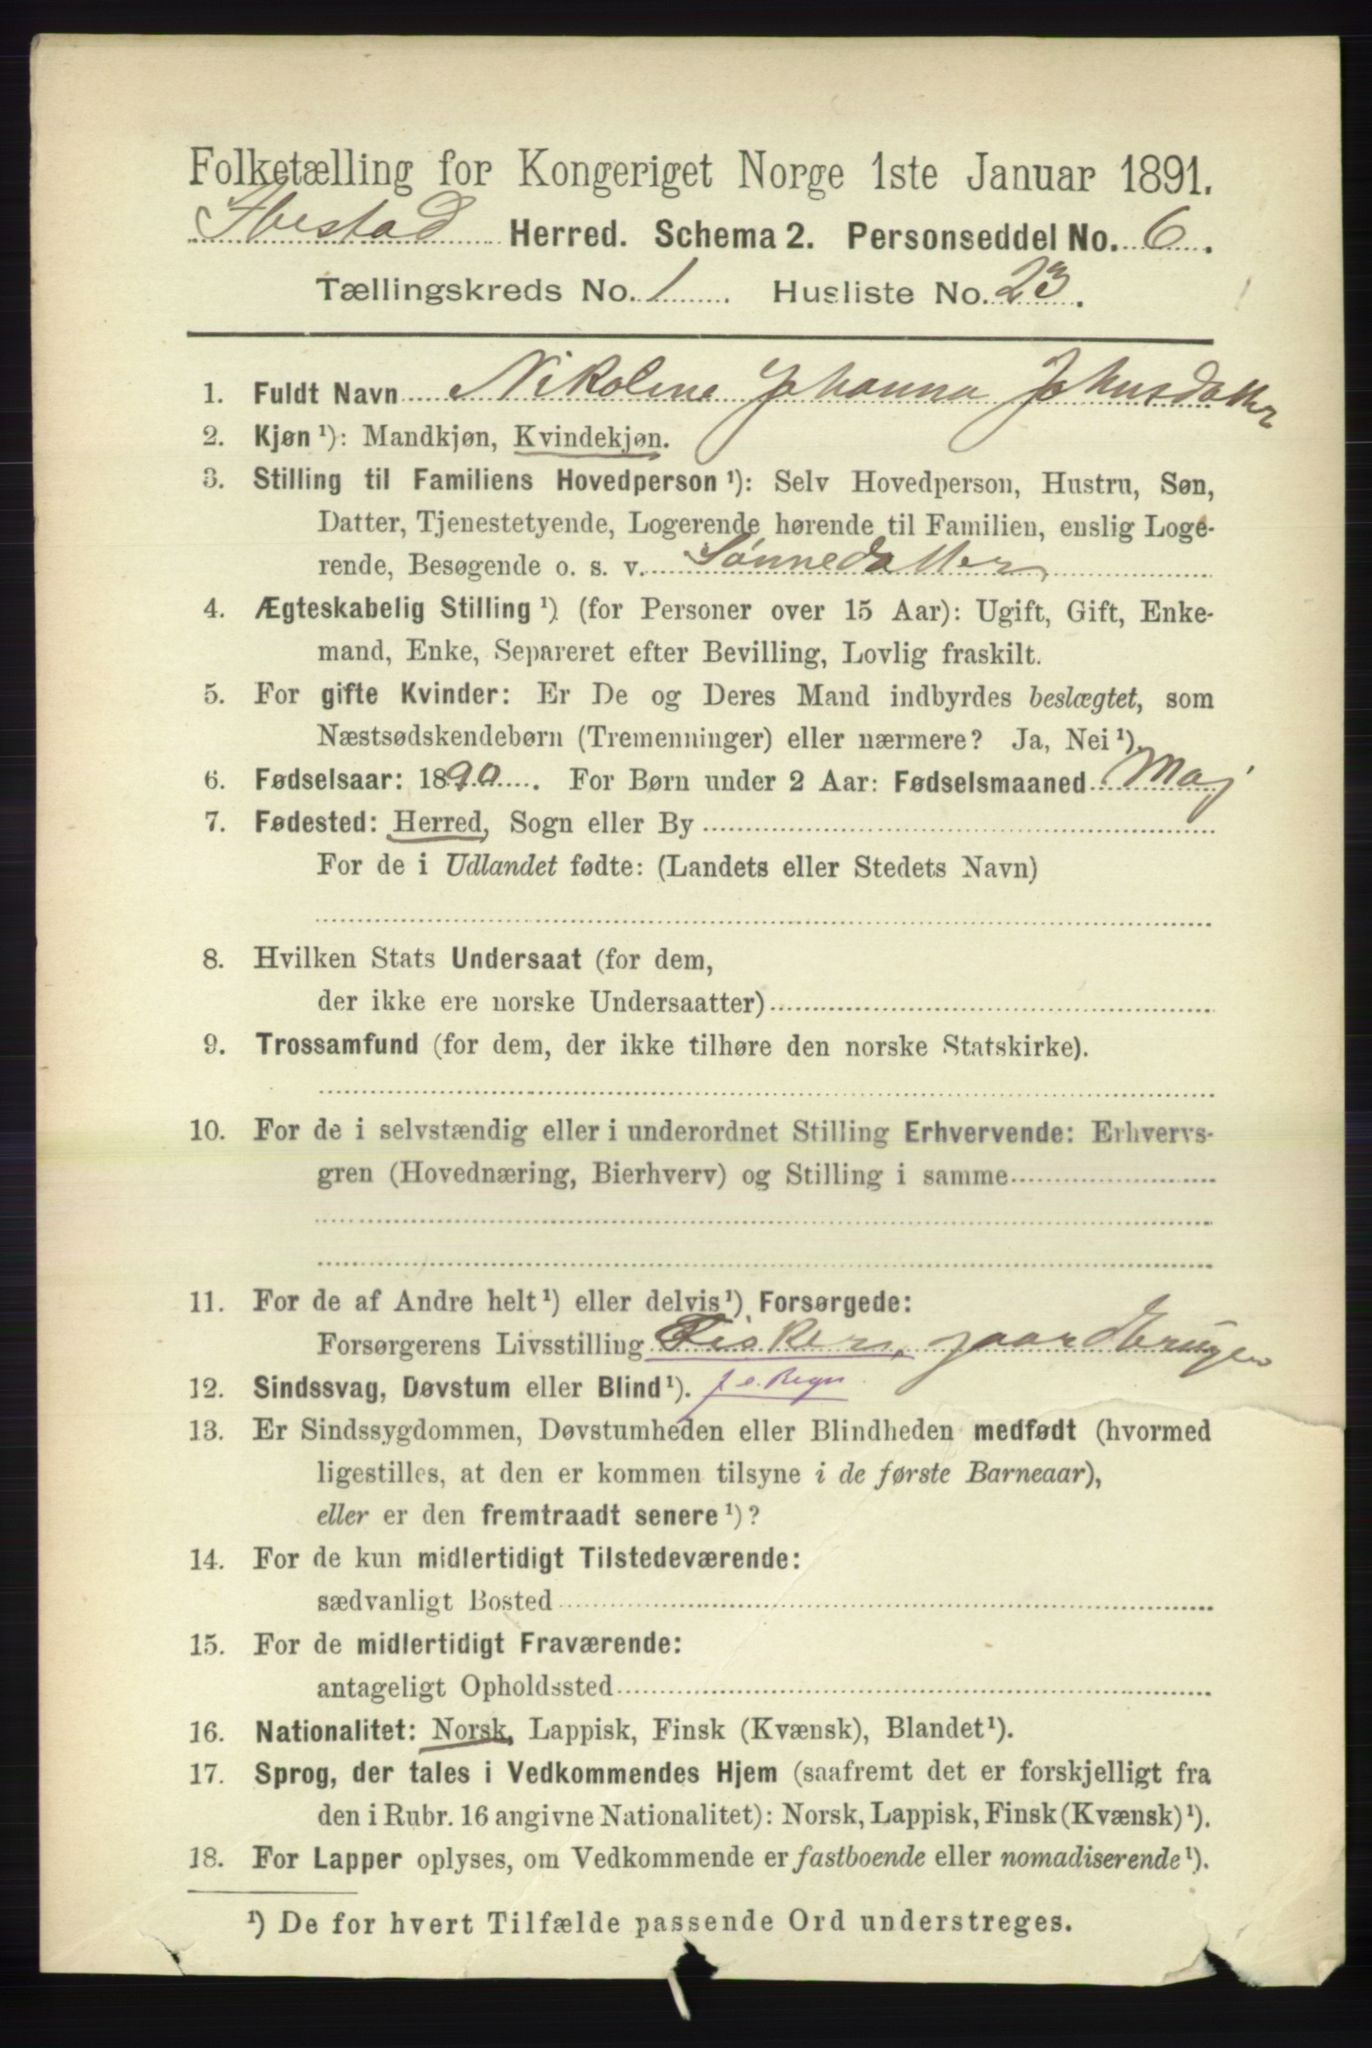 Folketælling for Kongeriget Norge 1ste Januar 1891.
Ibestad Herred. Schema 2. Personseddel No. 6.
Tællingskreds No. 1 Husliste No. 23.
1. Fuldt Navn Nikoline Johanna Johnsdatter
2. Kjøn ¹): Mandkjøn, Kvindekjøn.
3. Stilling til Familiens Hovedperson ¹): Selv Hovedperson, Hustru, Søn,
Datter, Tjenestetyende, Logerende hørende til Familien, enslig Loge-
rende, Besøgende o. s. v. Sønnedatter
4. Ægteskabelig Stilling ¹) (for Personer over 15 Aar): Ugift, Gift, Enke-
mand, Enke, Separeret efter Bevilling, Lovlig fraskilt.
5. For gifte Kvinder: Er De og Deres Mand indbyrdes beslægtet, som
Næstsødskendebørn (Tremenninger) eller nærmere? Ja, Nei ¹).
6. Fødselsaar: 1890. For Børn under 2 Aar: Fødselsmaaned Maj
7. Fødested: Herred, Sogn eller By
For de i Udlandet fødte: (Landets eller Stedets Navn)
8. Hvilken Stats Undersaat (for dem,
der ikke ere norske Undersaatter)
9. Trossamfund (for dem, der ikke tilhøre den norske Statskirke).
10. For de i selvstændig eller i underordnet Stilling Erhvervende: Erhvervs-
gren (Hovednæring, Bierhverv) og Stilling i samme
11. For de af Andre helt ¹) eller delvis ¹) Forsørgede:
Forsørgerens Livsstilling Fisker, gaardbruger
12. Sindssvag, Døvstum eller Blind ¹).
13. Er Sindssygdommen, Døvstumheden eller Blindheden medfødt (hvormed
ligestilles, at den er kommen tilsyne i de første Barneaar),
eller er den fremtraadt senere ¹)?
14. For de kun midlertidigt Tilstedeværende:
sædvanligt Bosted
15. For de midlertidigt Fraværende:
antageligt Opholdssted
16. Nationalitet: Norsk, Lappisk, Finsk (Kvænsk), Blandet ¹).
17. Sprog, der tales i Vedkommendes Hjem (saafremt det er forskjelligt fra
den i Rubr. 16 angivne Nationalitet): Norsk, Lappisk, Finsk (Kvænsk) ¹).
18. For Lapper oplyses, om Vedkommende er fastboende eller nomadiserende ¹).
¹) De for hvert Tilfælde passende Ord understreges.